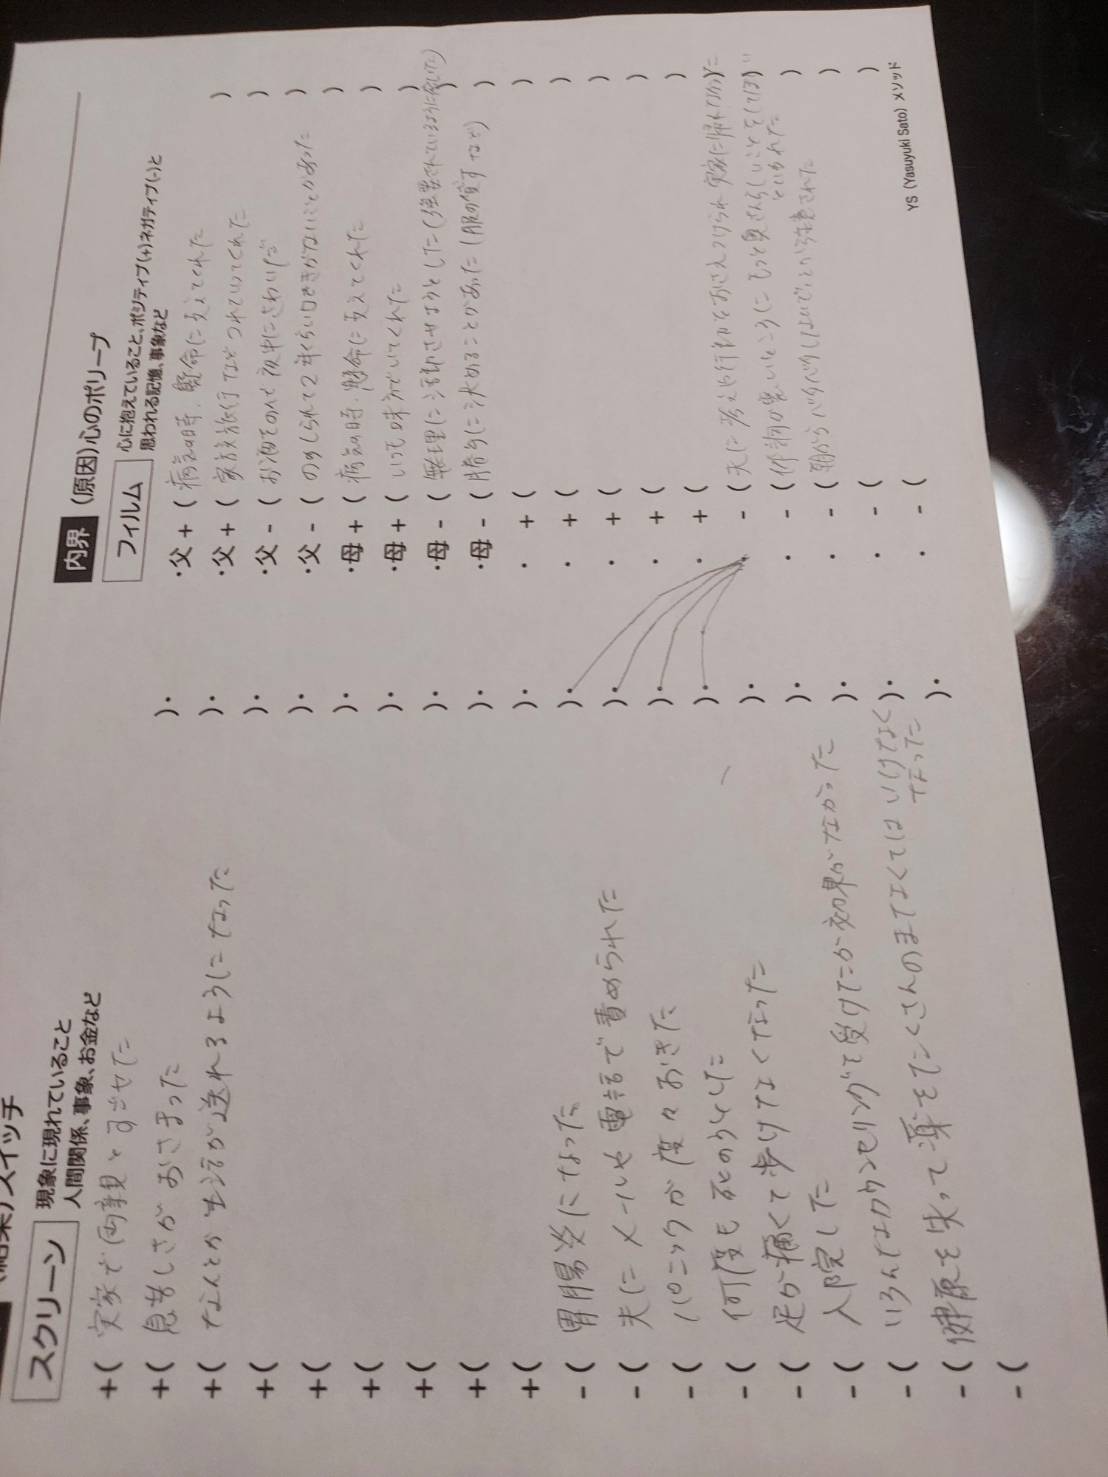 (結果)スイッチ
スクリーン
現象に現れていること
人間関係、事象、お金など
+( 実家で両親と可させた )・
+( 息苦しさがおさまった )・
+( なんとか生活が送れるようになった )・
+( )・
+( )・
+( )・
+( )・
+( )・
+( )・
-( 胃腸炎になった )・
-( 夫にメールや電話で責められた )・
-( パニックが度々おきた )・
-( 何度も死のうとした )・
-( 足が痛くて歩けなくなった )・
-( 入院した )・
-( いろんなカウンセリングを受けたが効果がなかった )・
-( 健康を失って薬をたくさんのまなくてはいけなくなった )・
-(
内界 (原因)心のポリープ
フィルム
心に抱えていること、ポジティブ(+)ネガティブ(-)と
思われる記憶、事象など
・父 + ( 病気の時、懸命に支えてくれた )
・父 + ( 家族旅行などつれていってくれた )
・父 - ( お酒をのんで夜中にさわいだ )
・父 - ( ののしられて2年くらい口をきかないことがあった )
・母 + ( 病気の時、懸命に支えてくれた )
・母 + ( いつも味方でいてくれた )
・母 - ( 無理に活動させようとした )
・母 - ( 勝手に決めることがあった (服の貸すなど) )
・ + ( )
・ + ( )
・ + ( )
・ + ( )
・ + ( )
・ - ( 夫に考えや行動をおさえつけられ実家に帰れなかった )
・ - ( 作物の悪いところにもっと奥さんらしいことをしてほしいといわれた )
・ - ( 朝から )
・ - ( )
・ - (
YS (Yasuyuki Sato) メソッド